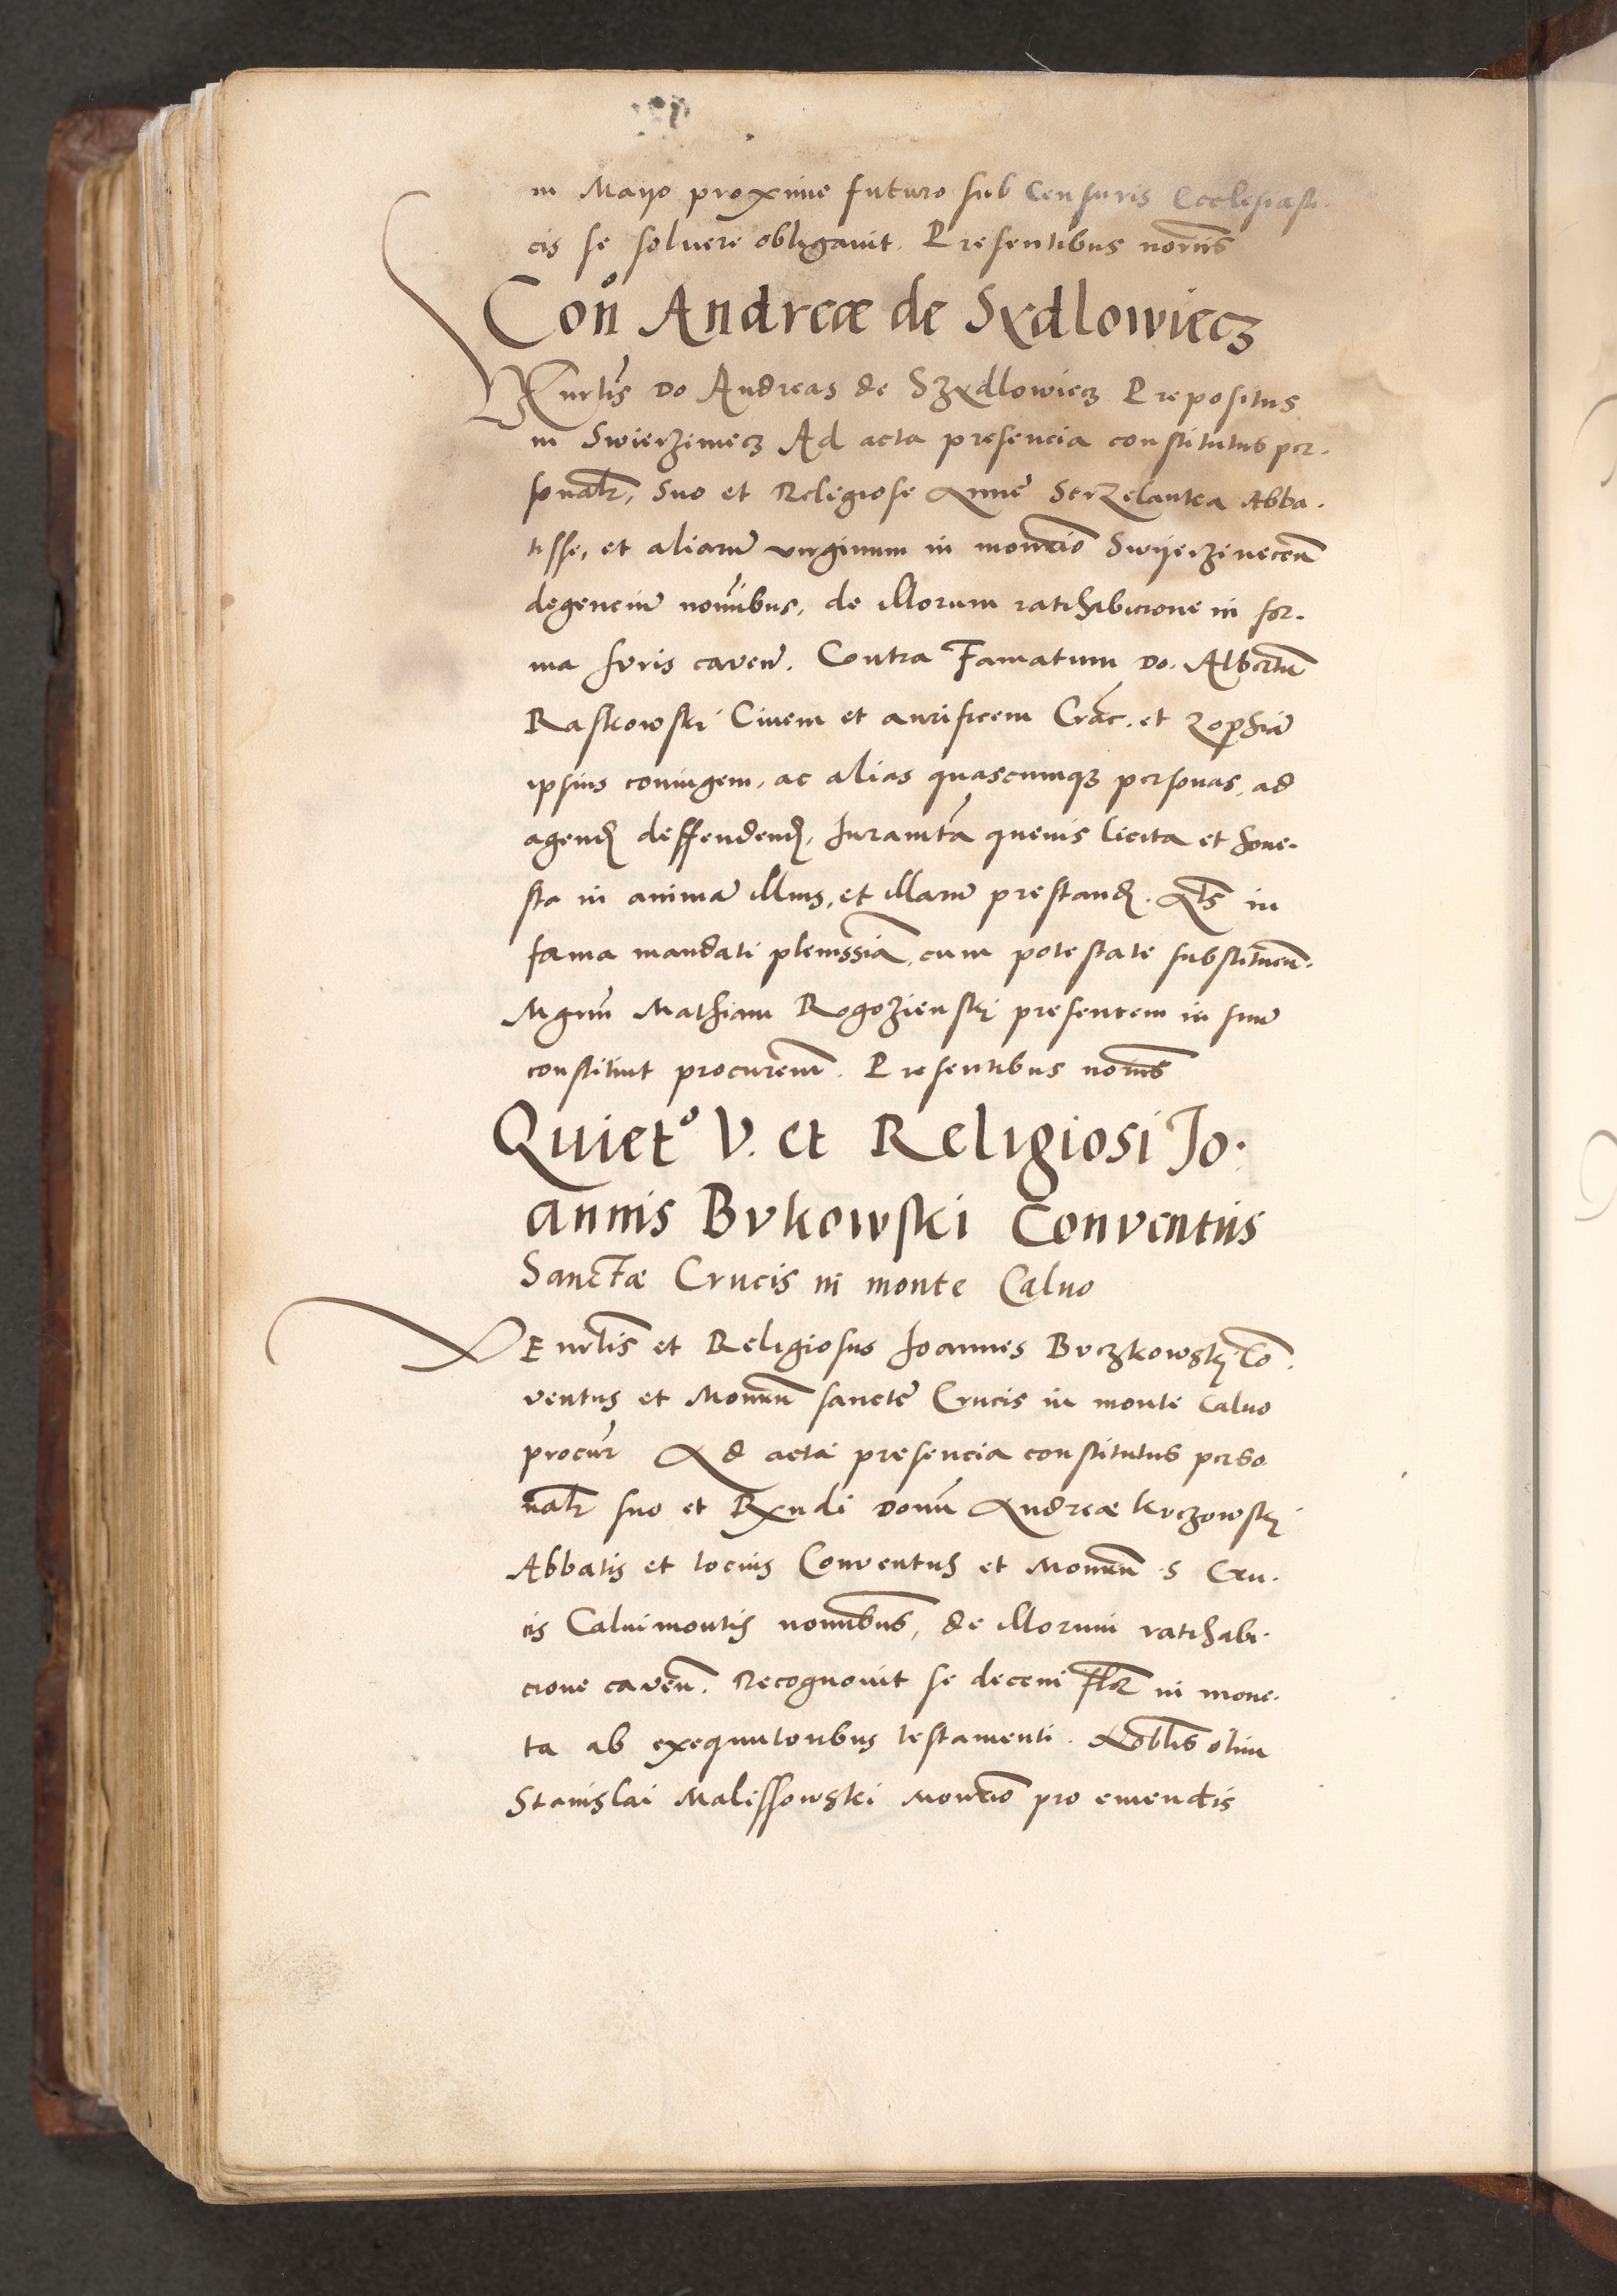 in Mayo proxime futuro sub Censuris Ecclesiasti.
cis se soluere obligauit. Presentibus nomīs
Con̊ Andreæ de Sxdlowiecz
Vn̄rlis Do Andreas de Szxdlowiecz Prepositus
in Swierziniecz Ad acta presencia constitutus per.
sonalr, suo et Religiose Anne Abba.
tisse, et aliarū virginum in mon̄rio Swyerzineceñ
degenciū nom̄ibus, de illorum ratihabicione in for.
ma Iuris caven̄. Contra Famatum Do. Albertū
Raskowski Ciuem et aurificem Crac̄. et Zophiā
ipsius coniugem, ac alias quascumqз personas, ad
agend̄ deffendend̄, Iuramt̄a queuis licita et hone.
sta in animā illius, et illarū prestand̄. Als in
forma mandati plenissiā, cum potestate substituen̄.
Mgrum̄ Mathiam Rogozienski presentem in suū
constituit procurem̄. Presentibus nomīs
Quiet° V. et Religiosi Jo.
annis Bvkowski Conventus
Sanctæ Crucis in monte Caluo
VEn̄rlis et Religiosus Joannes Bvczkowski Cō.
ventus et Monrn̄ sancte Crucis in monte Caluo
procur̄ Ad acta presencia constitutus perso
nalr suo et Rxndi Domī Andreæ Kvczowski
Abbatis et tocius Conventus et Monrn̄ S Cru.
cis Caluimontis nomībus, de illorum ratihabi.
cione caven̄. Recognouit se decem flor in mone.
ta ab exequutoribus testamenti. Noblis olim
Stanislai Malissowski Mon̄rio pro emendis